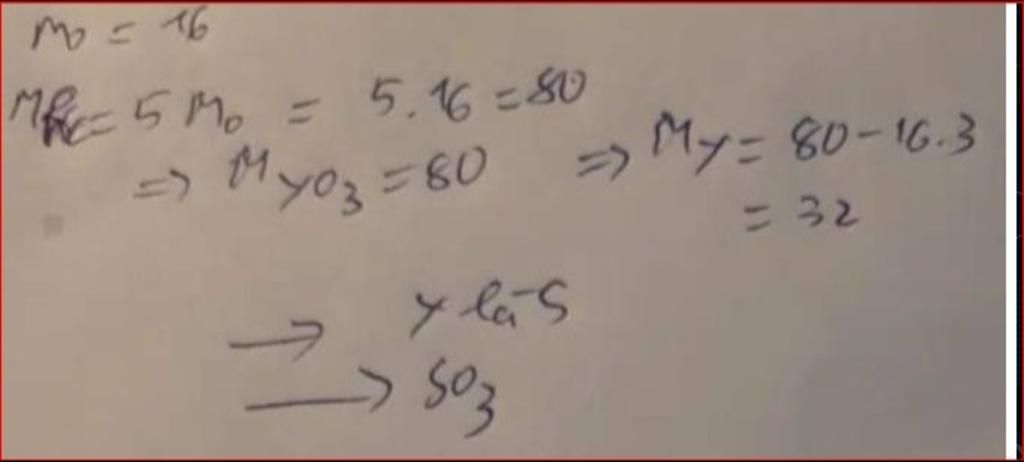 Mo = 16
= 5 Mo = 5.16 = 80
=> M YO3 = 80 => MY = 80 - 16.3
= 32
→ Y là S
→ SO3